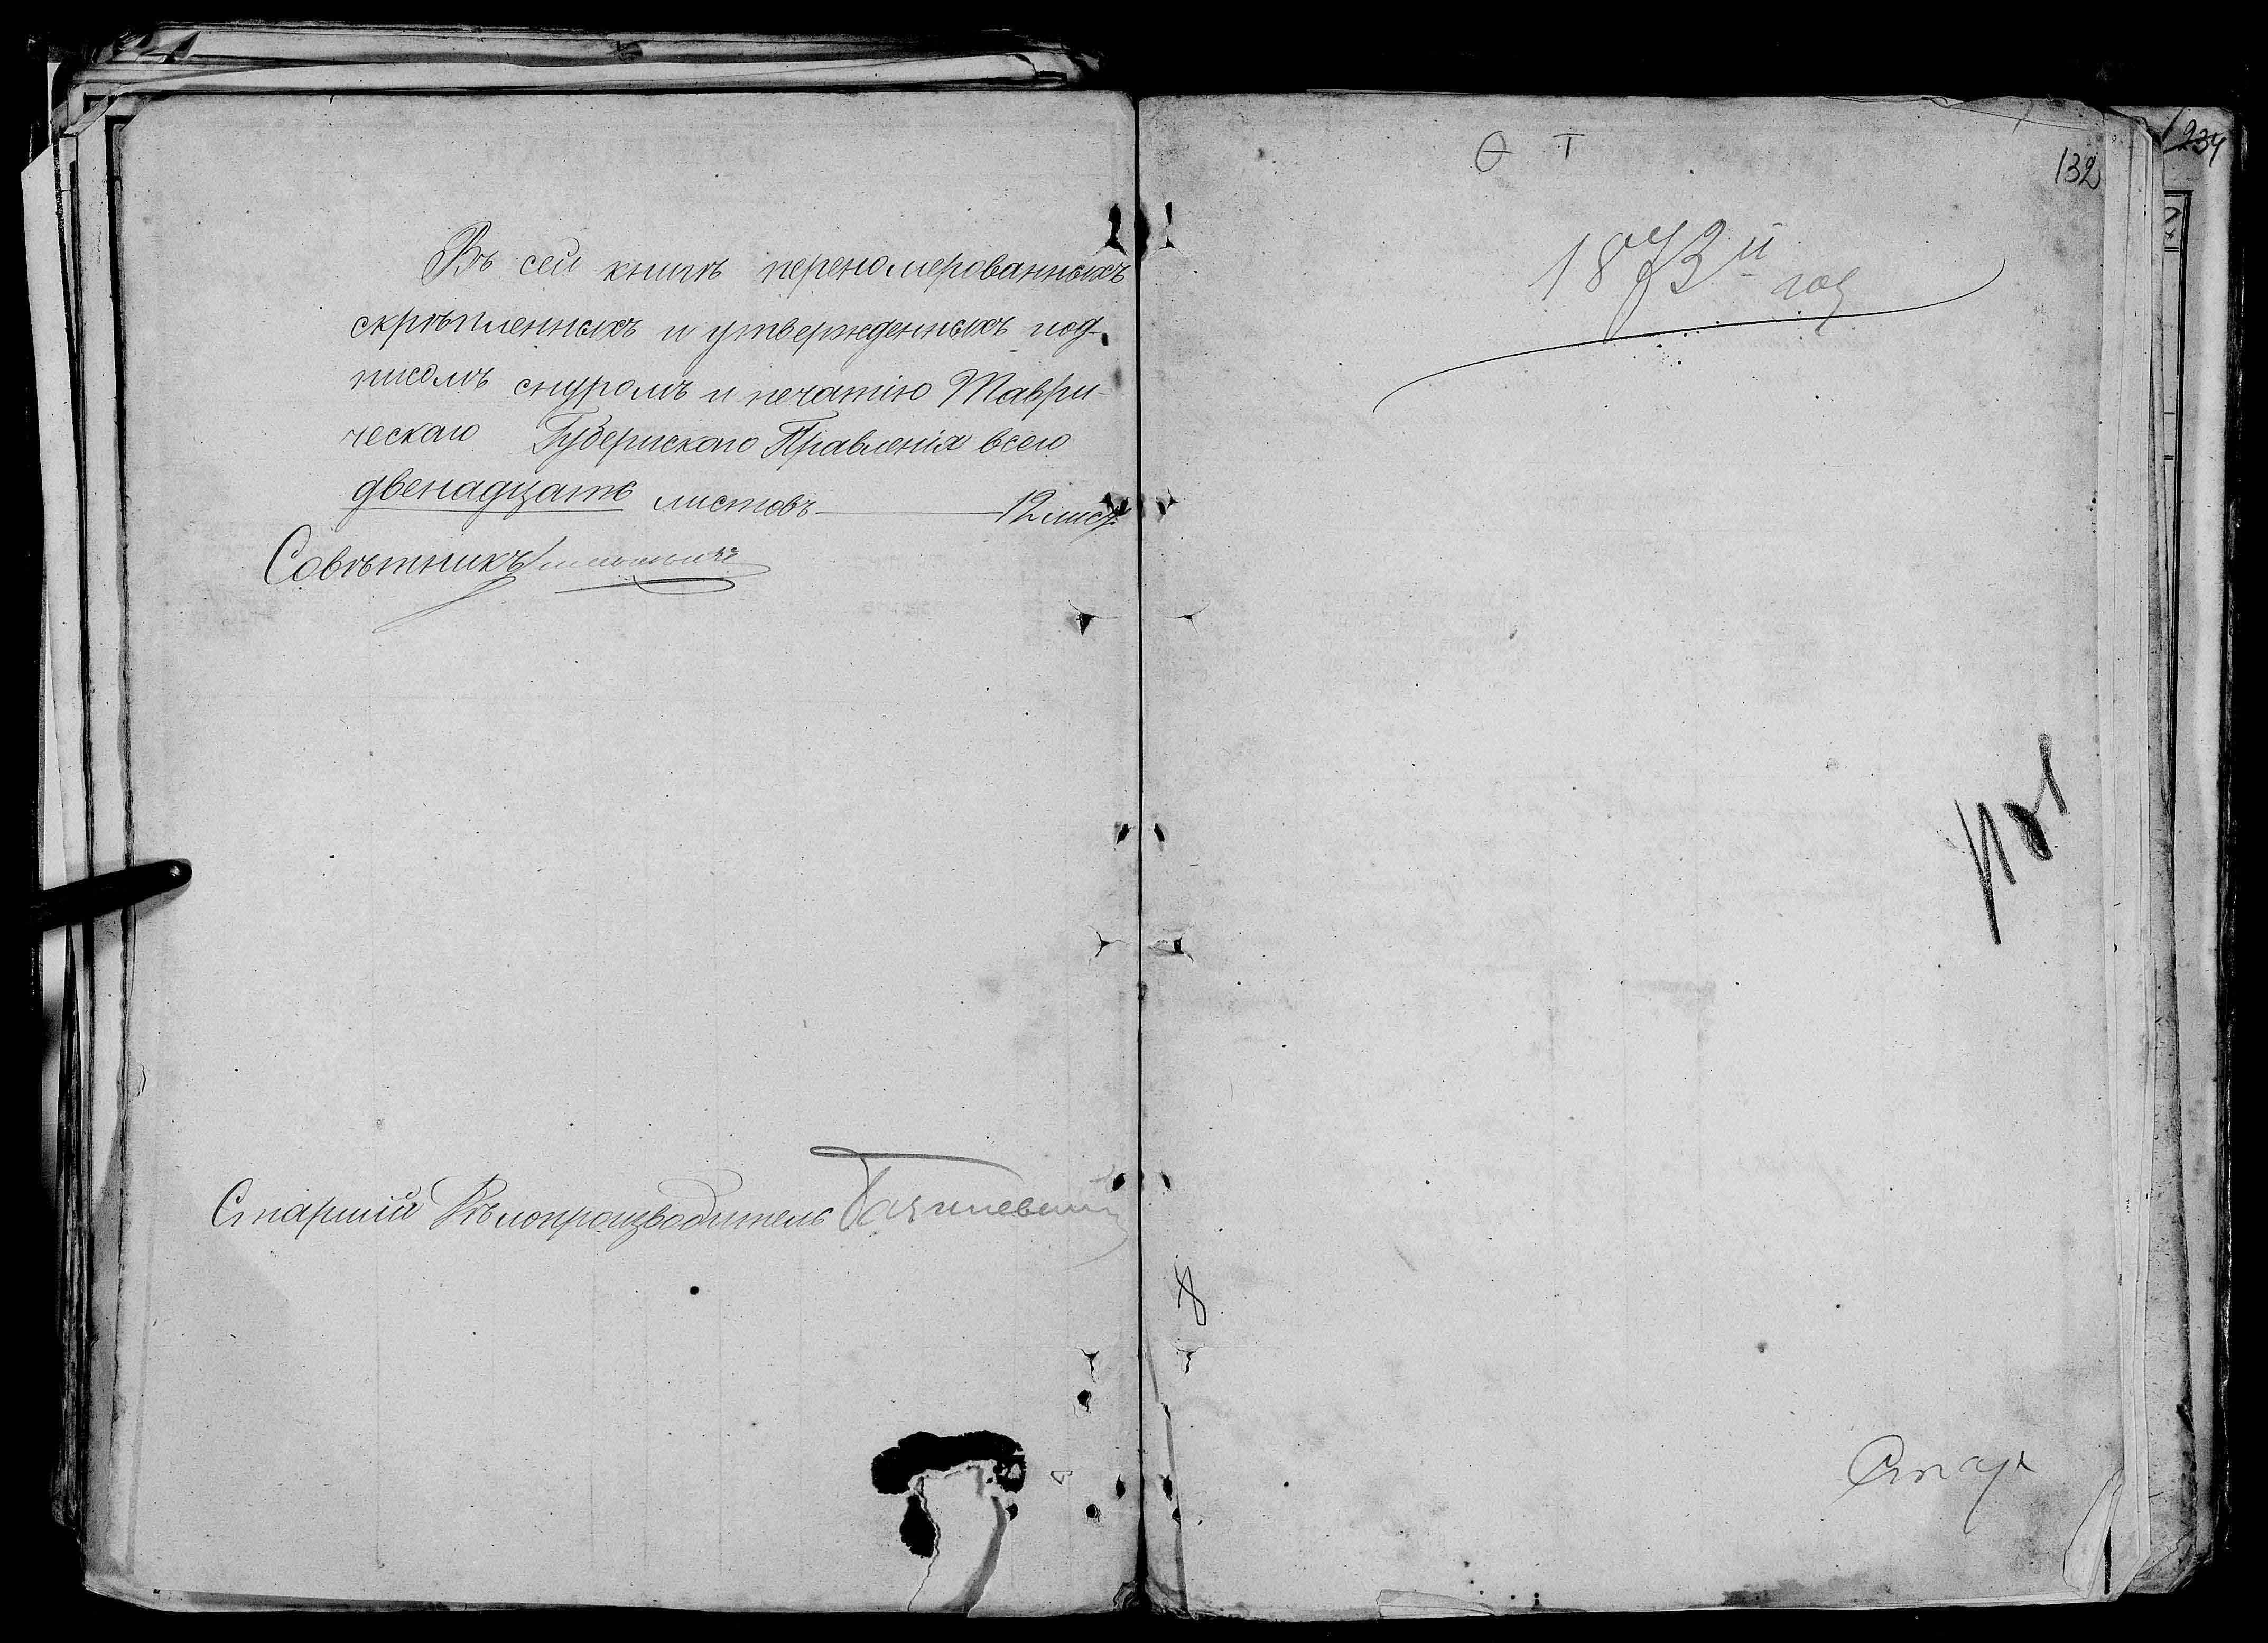 Въ сей книгѣ переномерованныхъ
скрѣпленныхъ и утвержденныхъ под-
писомъ снуромъ и печатію Таври-
ческаго Губернскаго Правленія всего
двенадцать листовъ 12 лист.
Совѣтникъ
Старшій Дѣлопроизводитель
132
234
1873й год